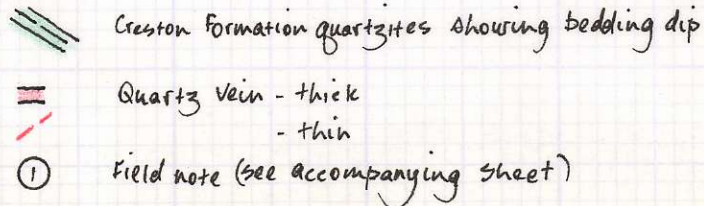 Creston Formation quartzites showing bedding dip
Quartz vein - thick
- thin
① Field note (see accompanying sheet)